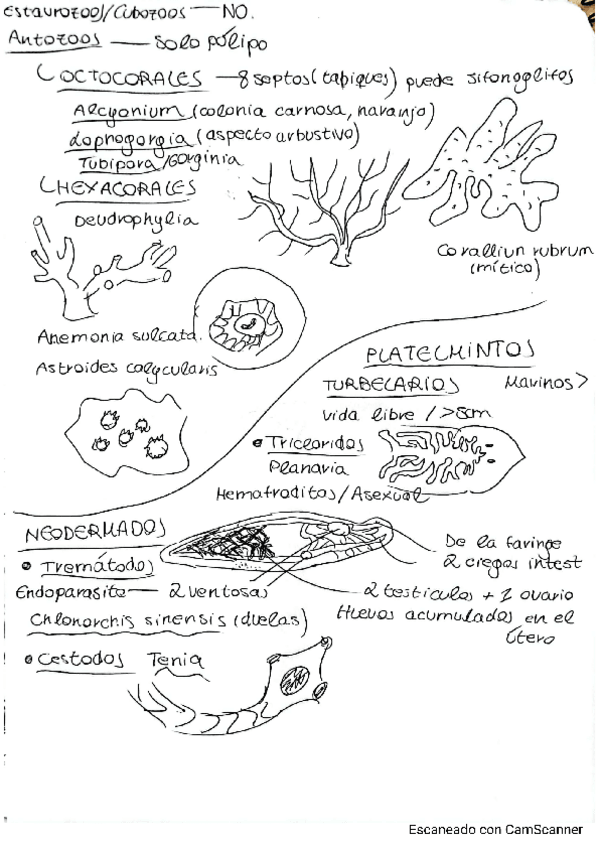 Estaurozoos/Cubozoos — NO.
Antozoos — solo pólipo
OCTOCORALES — 8 septos (tabiques) puede sifonoglifos
Alcyonium (colonia carnosa, naranjo)
Lophogorgia (aspecto arbustivo)
Tubipora/Gorginia
HEXACORALES
Deudrophylia
Coralliun rubrum
(mítico)
Anemonia sulcata.
Astroides calycularis
PLATELMINTOS
TURBELARIOS Marinos >
vida libre / >8cm
• Tricloridos
Planaria
Hemafroditos/Asexual
NEODERMADOS
• Tremátodos
Endoparasite — 2 ventosas
Chlonorchis sinensis (duelas)
De la faringe
2 ciegos intest
2 testiculos + 1 ovario
Huevos acumulados en el
Útero
• Cestodos Tenia
Escaneado con CamScanner